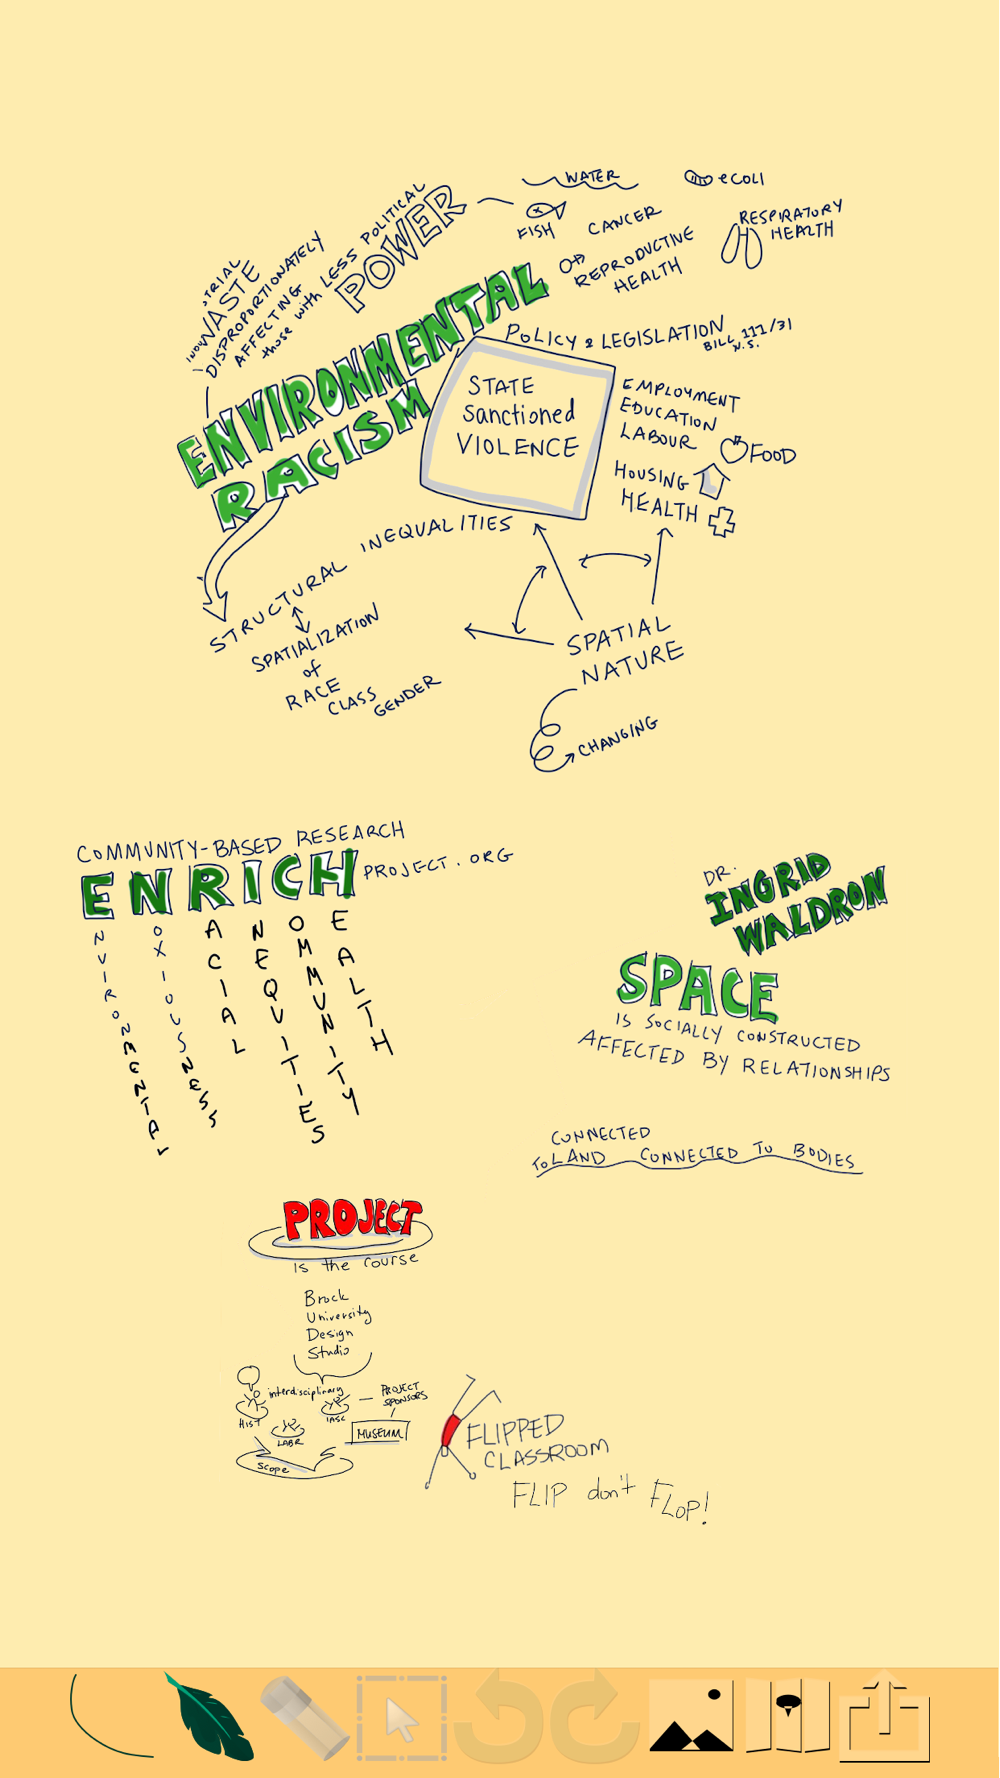 WATER
eCOLI
FISH
CANCER
RESPIRATORY
HEALTH
REPRODUCTIVE
HEALTH
INDUSTRIAL
WASTE
DISPROPORTIONATELY
AFFECTING
those with LESS POLITICAL
POWER
ENVIRONMENTAL
RACISM
POLICY & LEGISLATION
BILL 111/31
N.S.
STATE
Sanctioned
VIOLENCE
EMPLOYMENT
EDUCATION
LABOUR
FOOD
HOUSING
HEALTH
STRUCTURAL INEQUALITIES
SPATIALIZATION
of
RACE
CLASS
GENDER
SPATIAL
NATURE
CHANGING
COMMUNITY-BASED RESEARCH
ENRICH PROJECT.ORG
ENVIRONMENTAL
NOXIOUSNESS
RACIAL
INEQUITIES
COMMUNITY
HEALTH
DR.
INGRID
WALDRON
SPACE
IS SOCIALLY CONSTRUCTED
AFFECTED BY RELATIONSHIPS
CONNECTED
TO LAND CONNECTED TO BODIES
PROJECT
is the course
Brock
University
Design
Studio
interdisciplinary
PROJECT
SPONSORS
HIST
IASC
LABR
MUSEUM
scope
FLIPPED
CLASSROOM
FLIP don't FLOP!